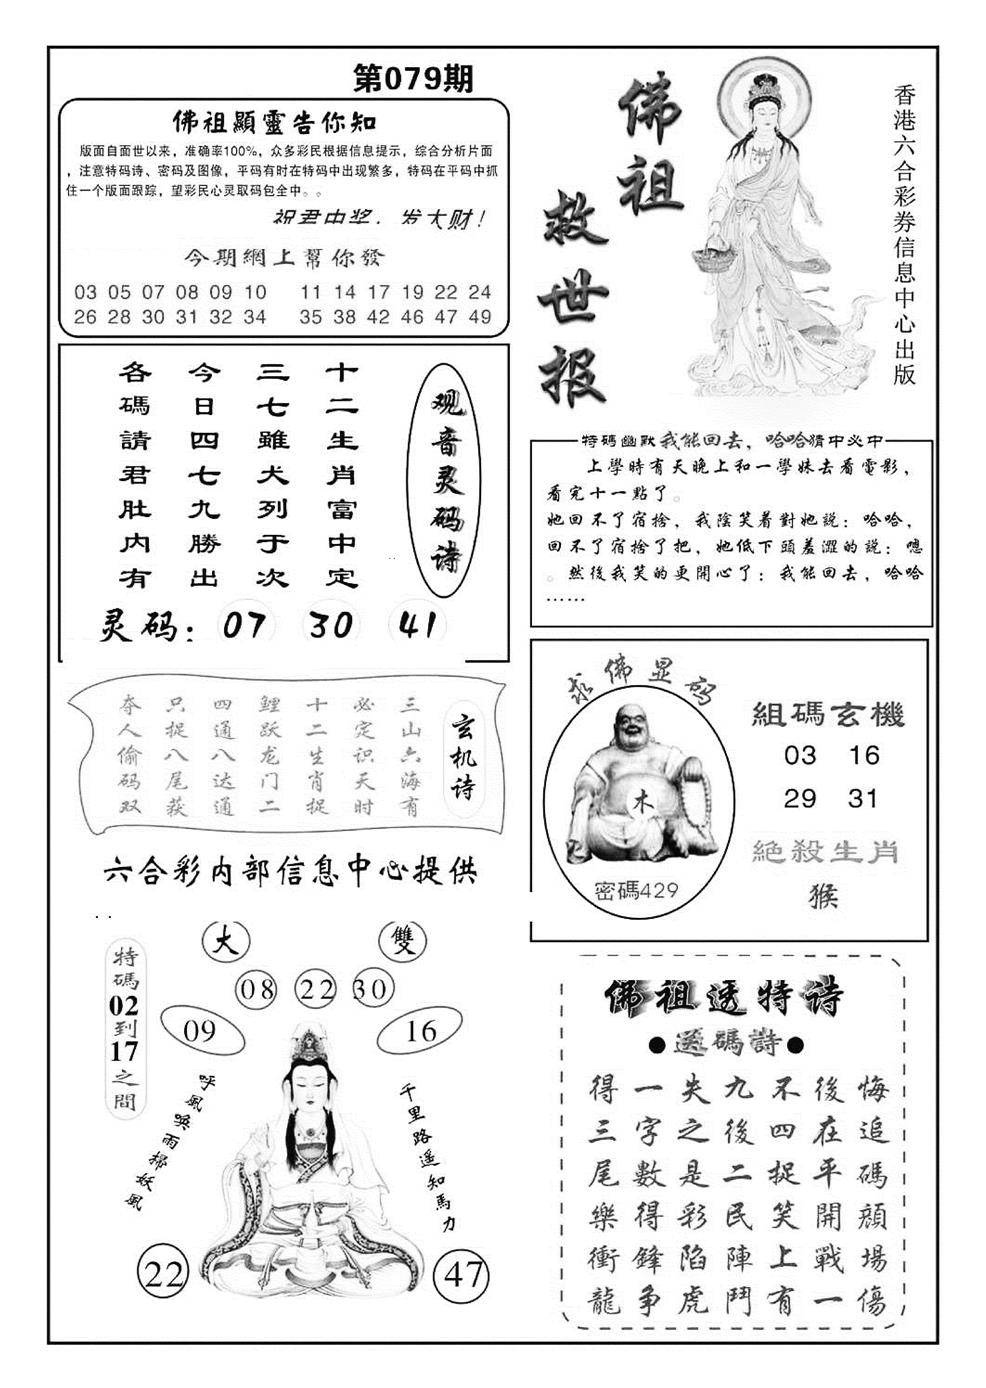 第079期
佛祖顯靈告你知
版面自面世以来，准确率100%，众多彩民根据信息提示，综合分析片面
，注意特码诗、密码及图像，平码有时在特码中出现繁多，特码在平码中抓
住一个版面跟踪，望彩民心灵取码包全中。。
祝君中奖，发大财！
今期網上幫你發
03 05 07 08 09 10 11 14 17 19 22 24
26 28 30 31 32 34 35 38 42 46 47 49
佛祖
救世报
香港六合彩券信息中心出版
观音灵码诗
十二生肖富中定
三七雖犬列于次
今日四七九勝出
各碼請君肚内有
灵码：07 30 41
特碼幽默我能回去，哈哈猜中必中
上學時有天晚上和一學妹去看電影，
看完十一點了。
她回不了宿捨，我陰笑着對她説：哈哈，
回不了宿捨了把，她低下頭羞澀的説：嗯
。然後我笑的更開心了：我能回去，哈哈
……
玄机诗
三山六海有
必定识天时
十二生肖捉
鲤跃龙门二
四通八达通
只捉八尾获
夺人偷码双
六合彩内部信息中心提供
求佛显码
木
密碼429
組碼玄機
03 16
29 31
絕殺生肖
猴
大 雙
08 22 30
09 16
特碼02到17之間
呼風喚雨掃妖風
千里路遥知馬力
22 47
佛祖透特诗
●透碼詩●
得一失九不後悔
三字之後四在追
尾數是二捉平碼
樂得彩民笑開顔
衝鋒陷陣上戰場
龍争虎鬥有一傷